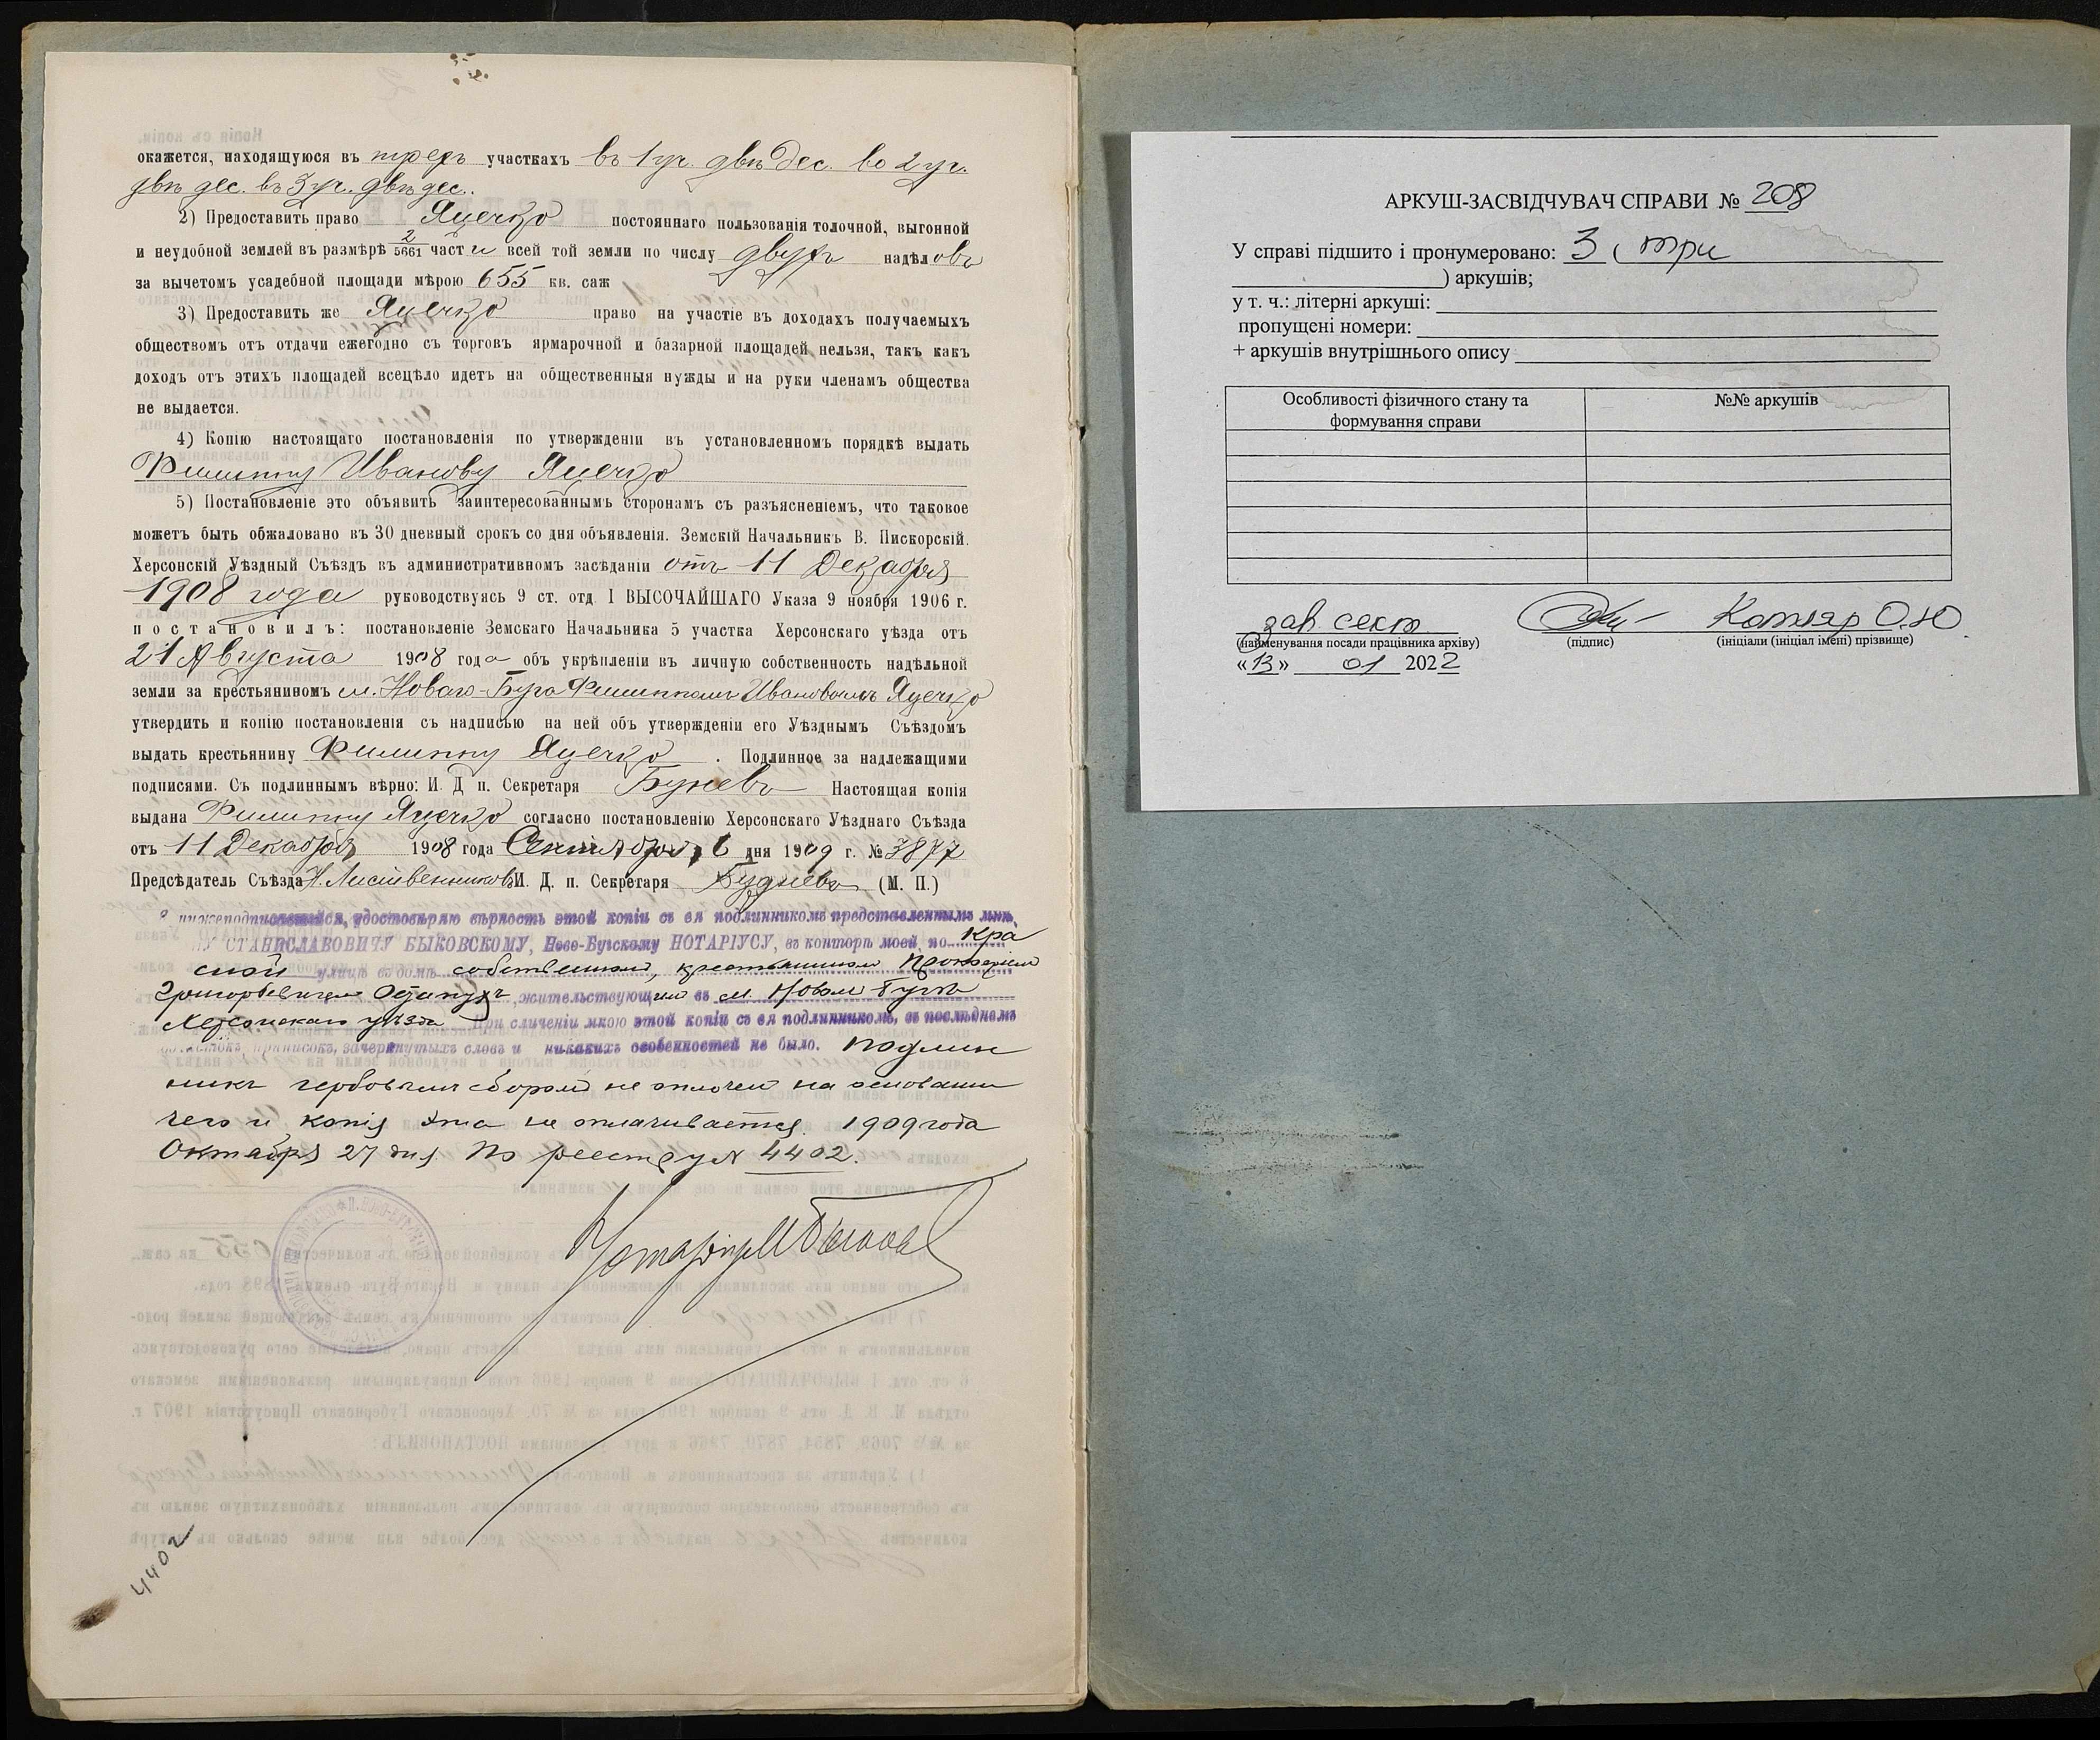 окажется, находящуюся въ трехъ участкахъ въ 1 уч. двѣ дес. во 2 уч.
двѣ дес. въ 3 уч. двѣ дес.
2) Предоставить право Яцечко постояннаго пользованія толочной, выгонной
и неудобной землей въ размѣрѣ 2/5661 части всей той земли по числу двухъ надѣловъ
за вычетомъ усадебной площади мѣрою 655 кв. саж
3) Предоставить же Яцечко право на участіе въ доходахъ получаемыхъ
обществомъ отъ отдачи ежегодно съ торговъ ярмарочной и базарной площадей нельзя, такъ какъ
доходъ отъ этихъ площадей всецѣло идетъ на общественныя нужды и на руки членамъ общества
не выдается.
4) Копію настоящаго постановленія по утвержденіи въ установленномъ порядкѣ выдать
Филиппу Иванову Яцечко
5) Постановленіе это объявить заинтересованнымъ сторонамъ съ разъясненіемъ, что таковое
можетъ быть обжаловано въ 30 дневный срокъ со дня объявленія. Земскій Начальникъ В. Пискорскій.
Херсонскій Уѣздный Съѣздъ въ административномъ засѣданіи отъ 11 Декабря
1908 года руководствуясь 9 ст. отд. I ВЫСОЧАЙШАГО Указа 9 ноября 1906 г.
постановилъ: постановленіе Земскаго Начальника 5 участка Херсонскаго уѣзда отъ
21 Августа 1908 года объ укрѣпленіи въ личную собственность надѣльной
земли за крестьяниномъ м. Новаго-Буга Филиппомъ Ивановымъ Яцечко
утвердить и копію постановленія съ надписью на ней объ утвержденіи его Уѣзднымъ Съѣздомъ
выдать крестьянину Филиппу Яцечко. Подлинное за надлежащими
подписями. Съ подлиннымъ вѣрно: И. Д п. Секретаря Настоящая копія
выдана Филиппу Яцечко согласно постановленію Херсонскаго Уѣзднаго Съѣзда
отъ 11 Декабря 1908 года Сентября 6 дня 1909 г. № 3877
Предсѣдатель Съѣзда Н. Листвениковъ И. Д. п. Секретаря Буднева (М. П.)
нижеподписавшійся, удостовѣряю вѣрность этой копіи съ ея подлинникомъ представленнымъ мнѣ,
СТАНИСЛАВОВИЧУ БЫКОВСКОМУ, Ново-Бугскому НОТАРІУСУ, въ конторѣ моей, по Кра
сной улицѣ въ домѣ собственномъ, крестьяниномъ Прокофіемъ
Григорьевичемъ жительствующимъ въ м. Новомъ Бугѣ
Херсонскаго уѣзда При сличеніи мною этой копіи съ ея подлинникомъ, въ послѣднемъ
приписокъ, зачеркнутыхъ словъ и никакихъ особенностей не было. Подлин
никъ гербовымъ сборомъ не оплоченъ на основаніи
чего и копія эта не оплачивается. 1909 года
Октября 27 дня. По реестру № 4402.
Нотаріусъ Быков
4402
АРКУШ-ЗАСВІДЧУВАЧ СПРАВИ № 208
У справі підшито і пронумеровано: 3 ( три
) аркушів;
у т. ч.: літерні аркуші:
пропущені номери:
+ аркушів внутрішнього опису
Особливості фізичного стану та формування справи
№№ аркушів
зав. сект Котляр О.Ю.
(найменування посади працівника архіву) (підпис) (ініціали (ініціал імені) прізвище)
«13» 01 2022